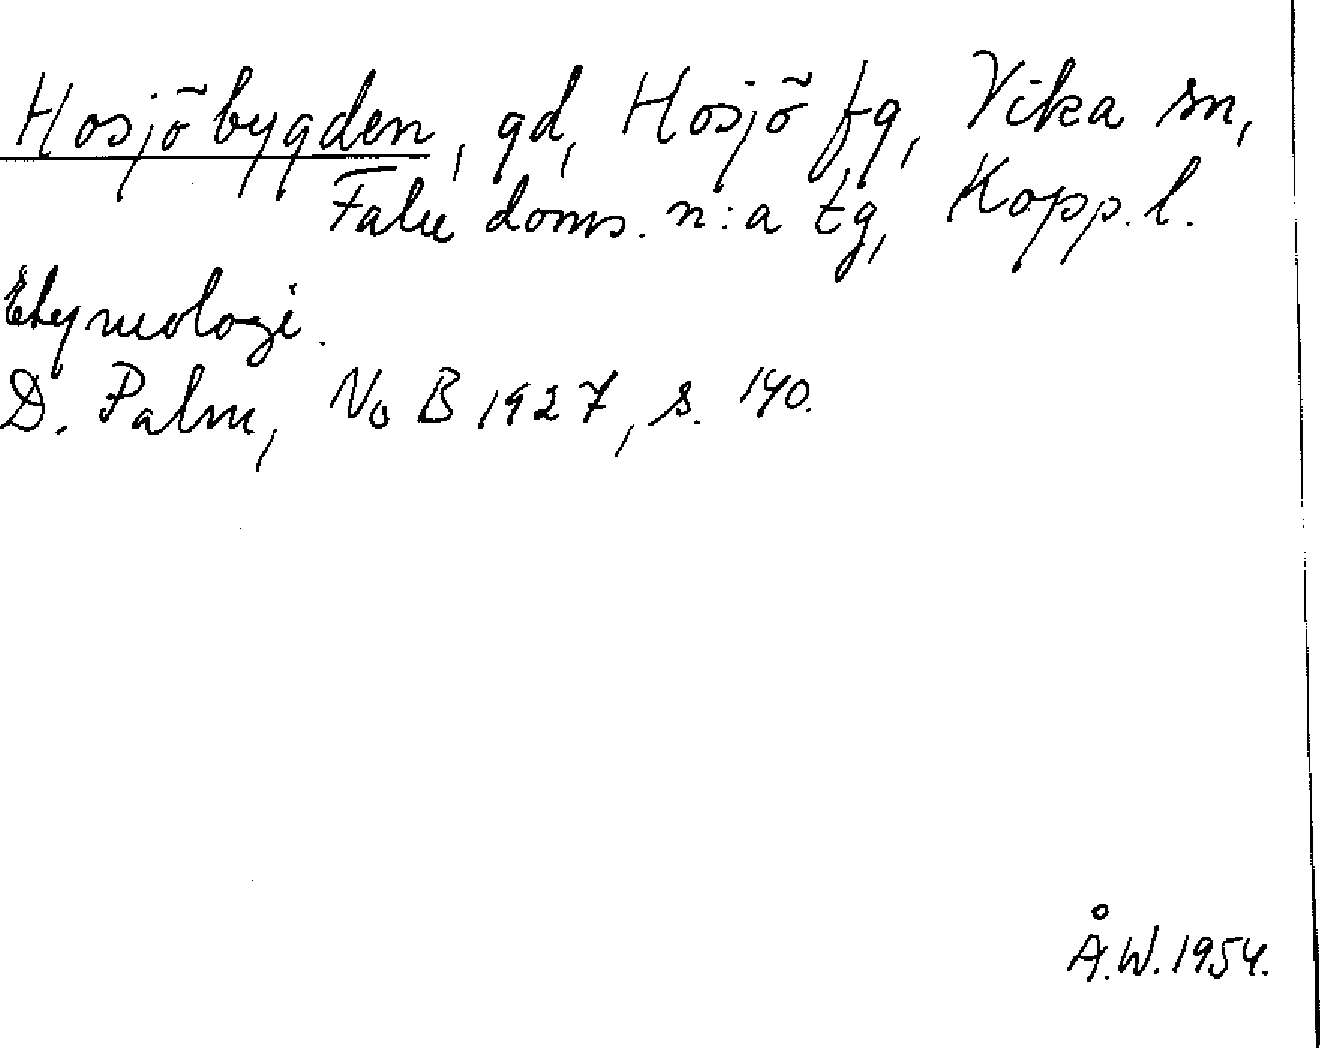 Hosjöbygden, gd, Hosjö fg, Vika sn,
Falu doms. n:a tg, Kopp. l.
Etymologi.
D. Palm, NoB 1927, s. 140.
Å.W. 1954.